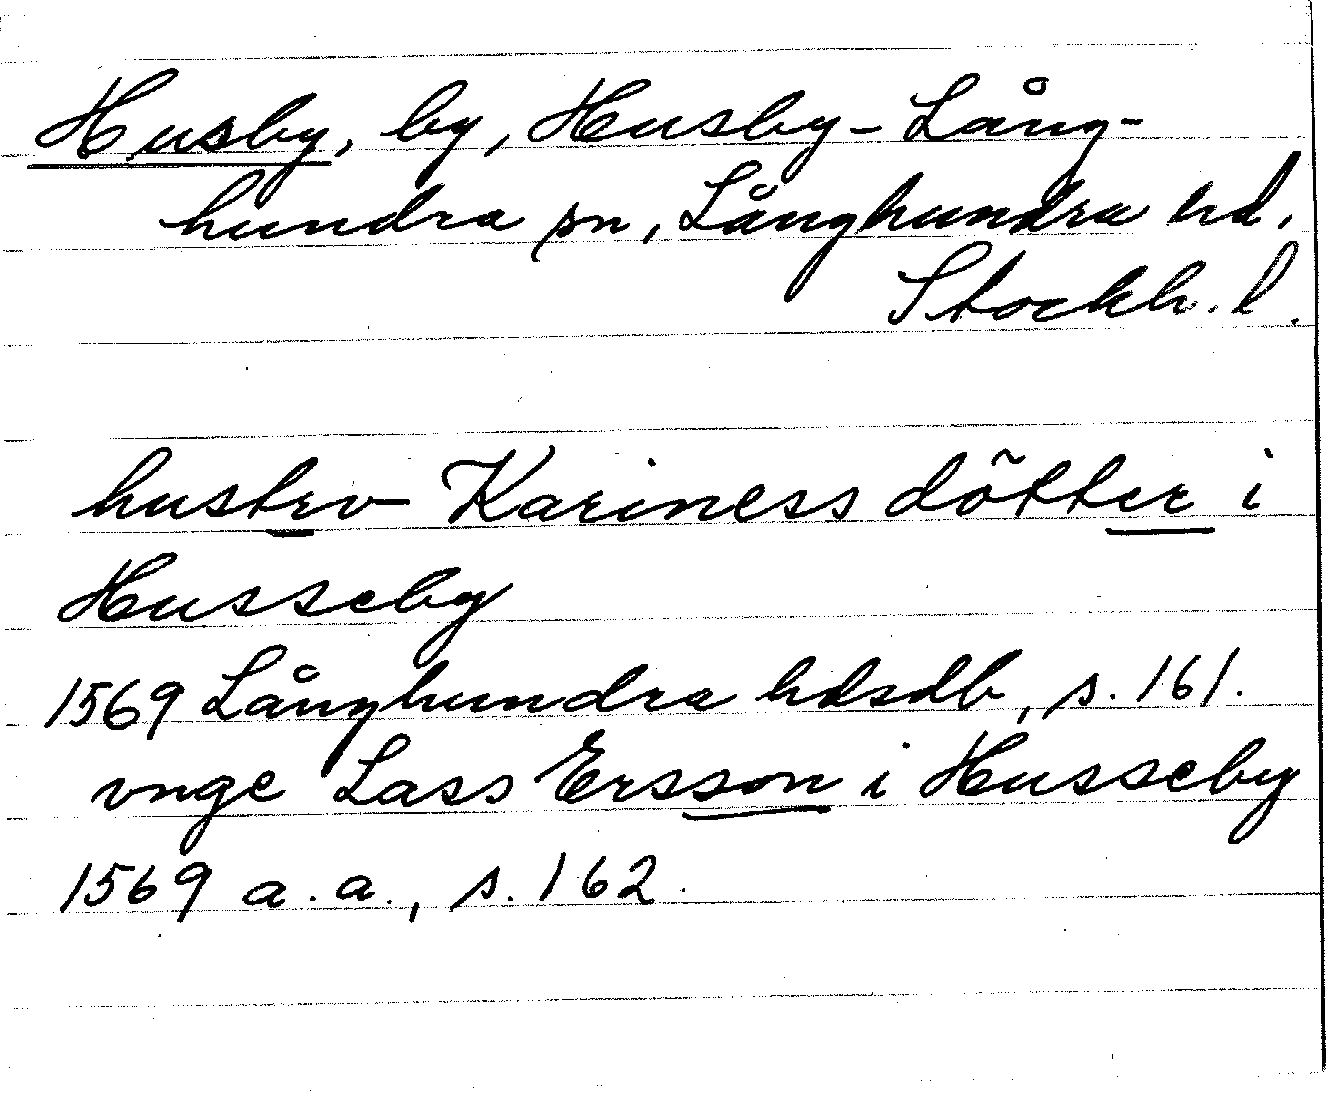 Husby, by, Husby-Lång-
hundra sn, Långhundra hd,
Stockh. l.
hustrv Kariness dötter i
Husseby
1569 Långhundra hdsdb, s. 161.
vnge Lass Ersson i Husseby
1569 a.a., s. 162.